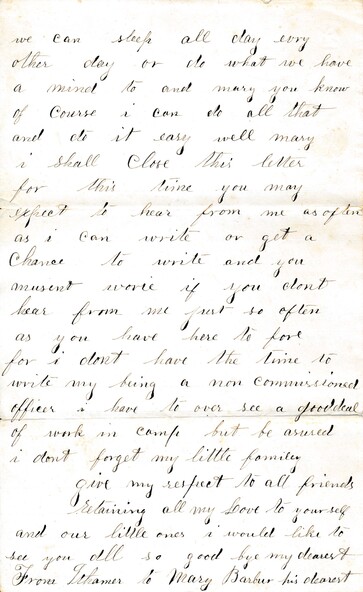 we can sleep all day evry
other day or do what we have
a mind to and mary you know
of Course i can do all that
and do it easy well mary
i shall Close this letter
for this time you may
expect to hear from me as often
as i can write or get a
Chance to write and you
musent worie if you dont
hear from me just so often
as you have here to fore
for i dont have the time to
write my being a non Commissioned
officer i have to over see a good deal
of work in camp but be asured
i dont forget my little familey
give my respect to all friends
Retaining all my Love to yourself
and our little ones i would like to
see you all so good bye my dearest
From Ithamer to Mary Barbur his dearest